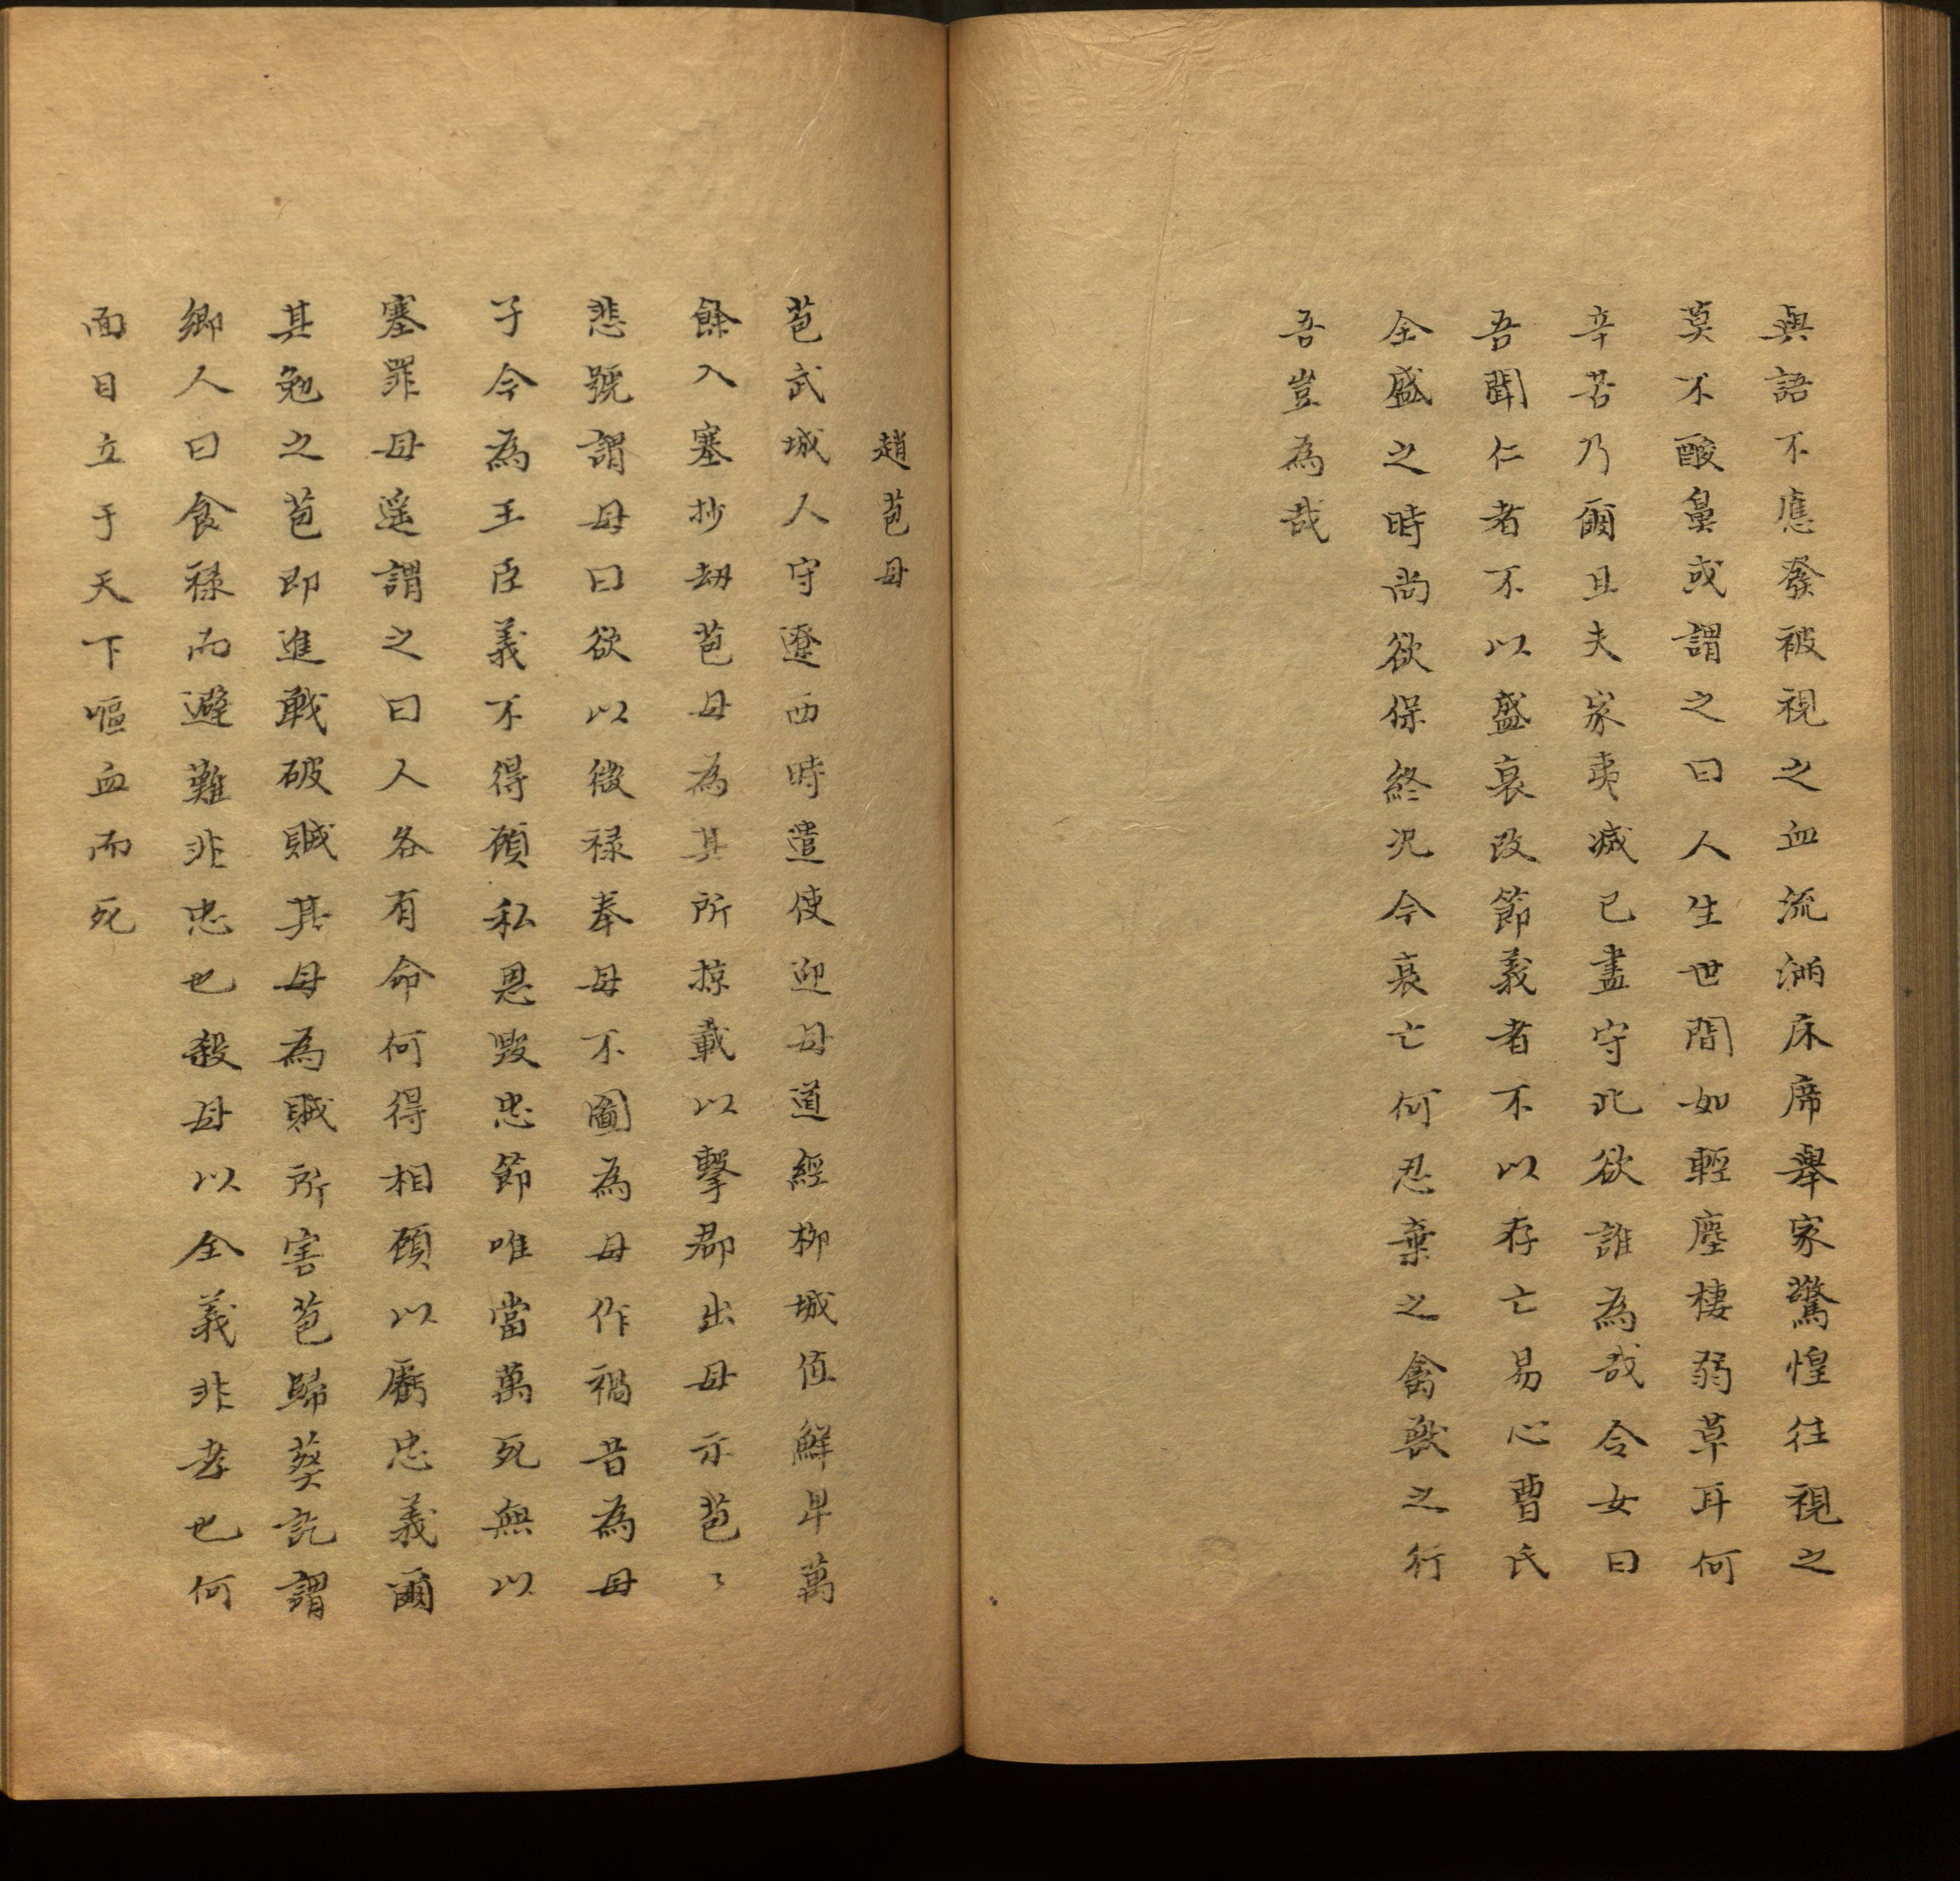 與語不應發被視之血流滿床席舉家驚惶往視之
莫不酸鼻或謂之曰人生世間如輕塵棲弱草耳何
辛苦乃爾且夫家夷滅已盡守此欲誰為哉令女曰
吾聞仁者不以盛衰改節義者不以存亡易心曹氏
全盛之時尚欲保終况今衰亡何忍棄之禽獸之行
吾豈為哉
趙苞母
苞武城人守遼西時遣使迎母道經柳城值鮮卑萬
餘入塞抄劫苞母為其所掠載以擊郡出母示苞〻
悲號謂母曰欲以微祿奉母不圖為母作禍昔為母
子今為王臣義不得顧私恩毀忠節唯當萬死無以
塞罪母遥謂之曰人各有命何得相顧以虧忠義爾
其勉之苞即進戰破賊其母為賊所害苞歸葬訖謂
鄉人曰食祿而避難非忠也殺母以全義非孝也何
面目立于天下嘔血而死